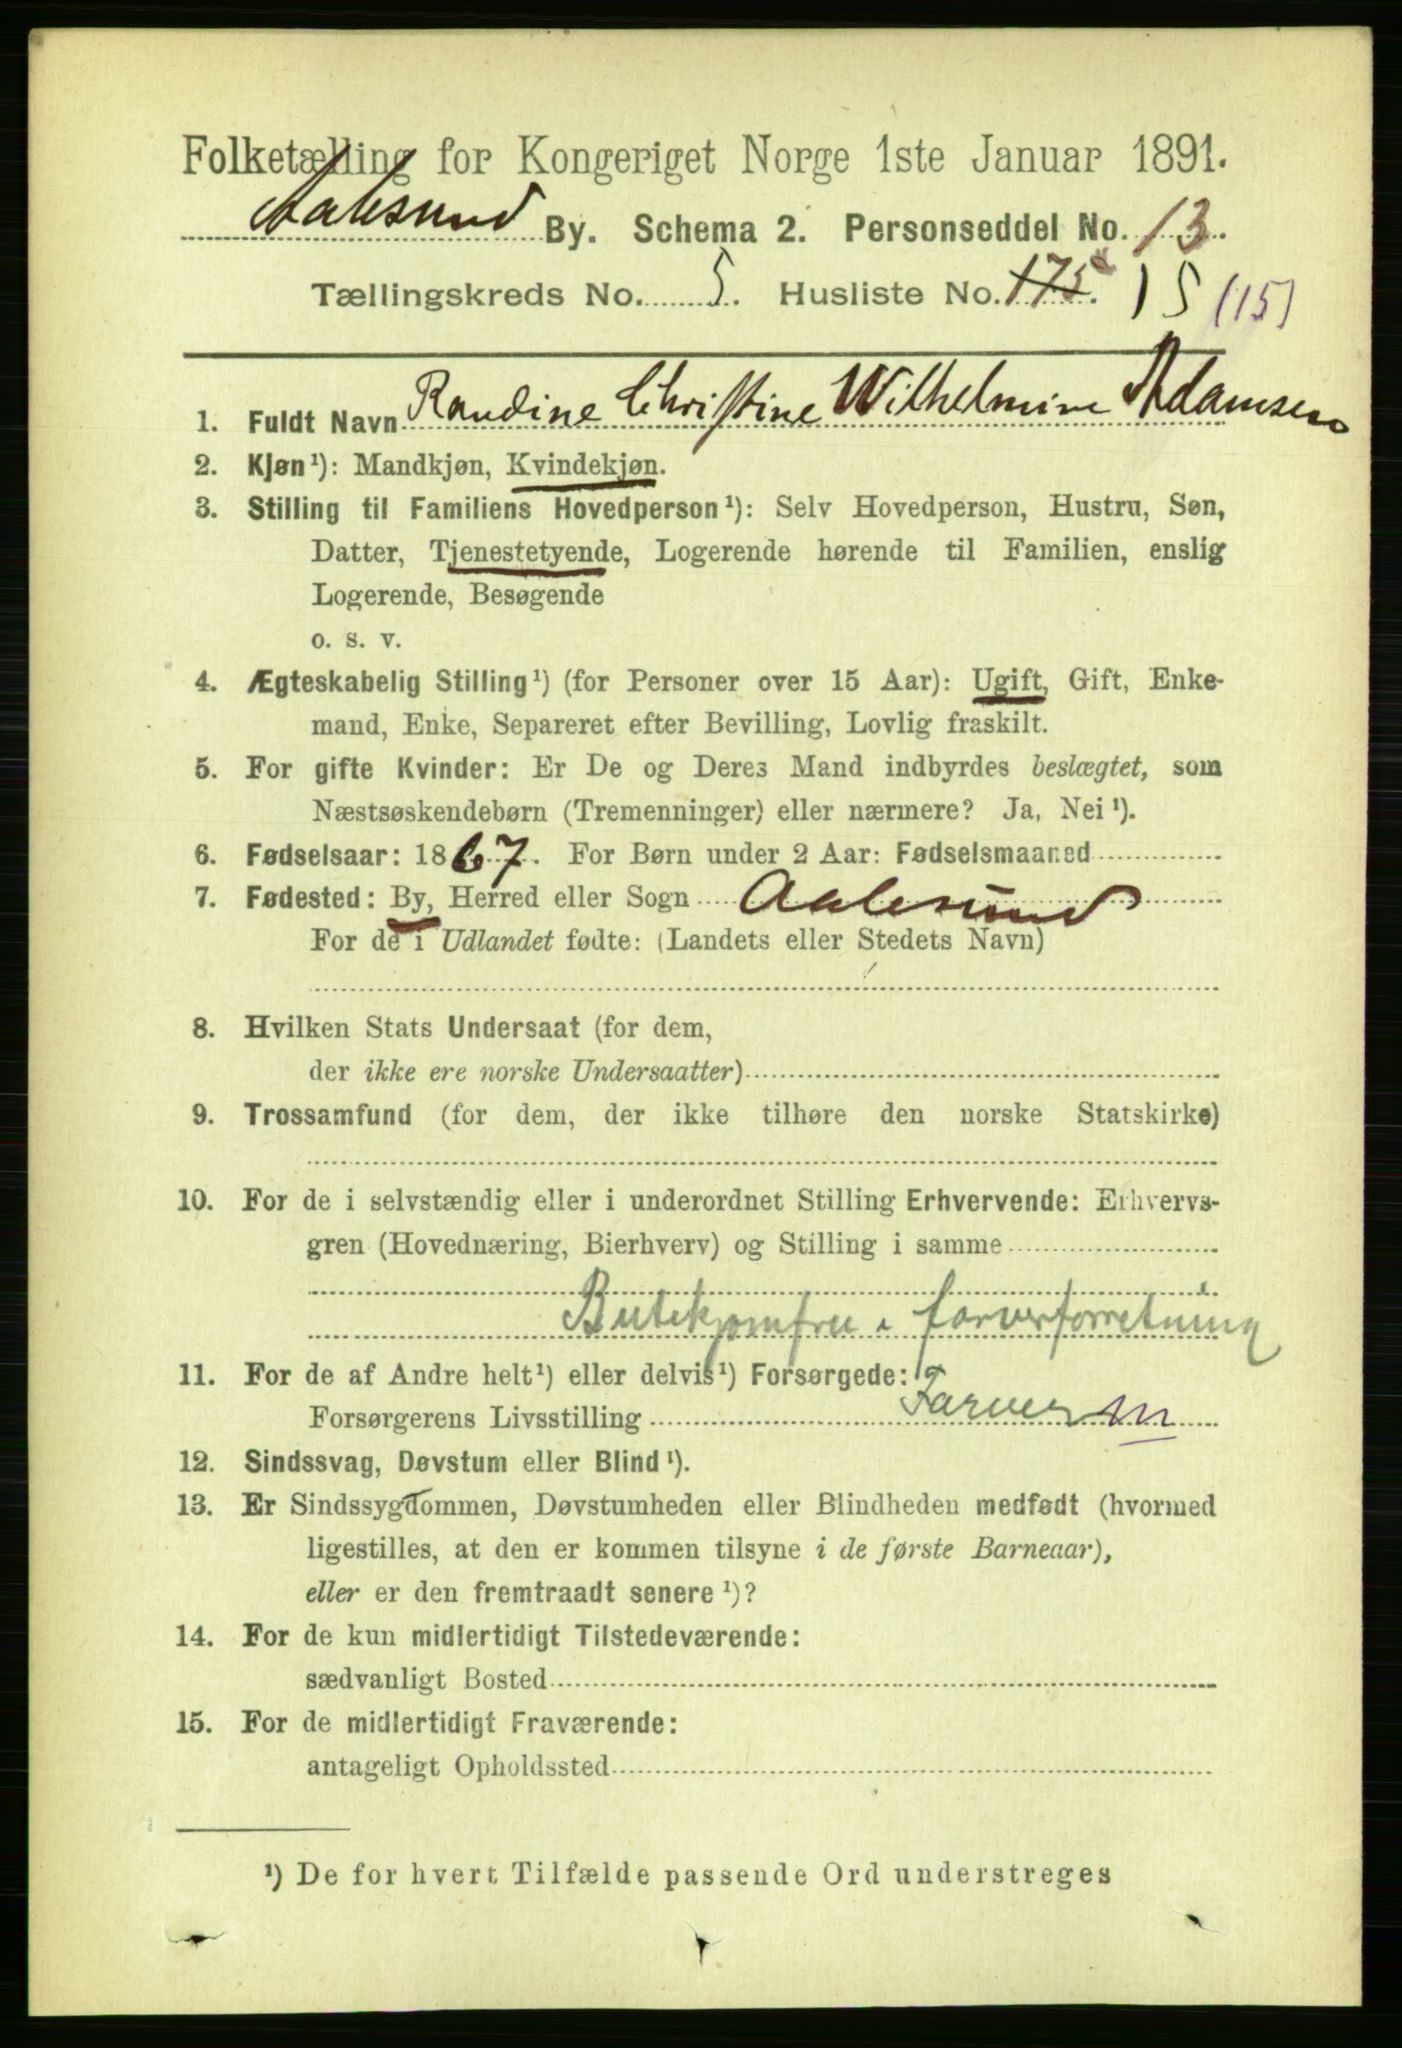 Folketælling for Kongeriget Norge 1ste Januar 1891.
Aalesund By. Schema 2. Personseddel No. 13.
Tællingskreds No. 5. Husliste No. 175. 15 (15)
1. Fuldt Navn Randine Christine Wilhelmine Adamsen
2. Kjøn¹): Mandkjøn, Kvindekjøn.
3. Stilling til Familiens Hovedperson¹): Selv Hovedperson, Hustru, Søn,
Datter, Tjenestetyende, Logerende hørende til Familien, enslig
Logerende, Besøgende
o. s. v.
4. Ægteskabelig Stilling¹) (for Personer over 15 Aar): Ugift, Gift, Enke-
mand, Enke, Separeret efter Bevilling, Lovlig fraskilt.
5. For gifte Kvinder: Er De og Deres Mand indbyrdes beslægtet, som
Næstsøskendebørn (Tremenninger) eller nærmere? Ja, Nei¹).
6. Fødselsaar: 1867. For Børn under 2 Aar: Fødselsmaaned
7. Fødested: By, Herred eller Sogn Aalesund
For de i Udlandet fødte: (Landets eller Stedets Navn)
8. Hvilken Stats Undersaat (for dem,
der ikke ere norske Undersaatter)
9. Trossamfund (for dem, der ikke tilhøre den norske Statskirke)
10. For de i selvstændig eller i underordnet Stilling Erhvervende: Erhvervs-
gren (Hovednæring, Bierhverv) og Stilling i samme
Butikjomfru i farverforretning
11. For de af Andre helt¹) eller delvis¹) Forsørgede:
Forsørgerens Livsstilling Farver m
12. Sindssvag, Døvstum eller Blind¹).
13. Er Sindssygdommen, Døvstumheden eller Blindheden medfødt (hvormed
ligestilles, at den er kommen tilsyne i de første Barneaar),
eller er den fremtraadt senere¹)?
14. For de kun midlertidigt Tilstedeværende:
sædvanligt Bosted
15. For de midlertidigt Fraværende:
antageligt Opholdssted
¹) De for hvert Tilfælde passende Ord understreges